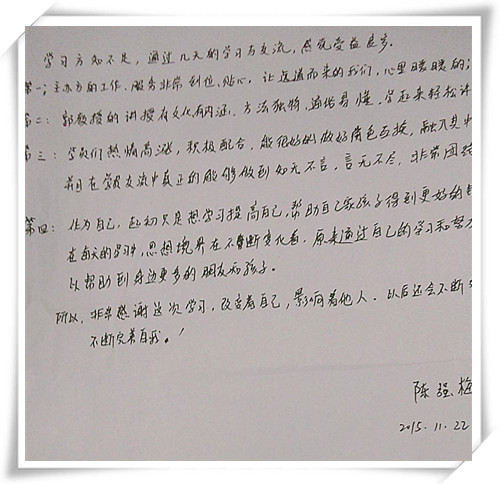 学习方知不足，通过几天的学习与交流，感觉受益良多.
第一；主办方的工作、服务非常到位、贴心，让远道而来的我们，心里暖暖的；
第二：郭教授的讲授有文化有内涵，方法独特，通俗易懂，学起来轻松
第三：学员们热情高涨，积极配合，能很好的做好角色互换，融入其中
并且在学员交流中真正的能够做到知无不言，言无不尽，非常团结
第四：作为自己，起初只是想学习提高自己，帮助自己家孩子得到更好的
在每天的学习中，思想境界在不断变化着，原来通过自己的学习和努力
以帮助到身边更多的朋友和孩子。
所以，非常感谢这次学习，改变着自己，影响着他人．以后还会不断
不断完善自我。！
陈强梅
2015.11.22